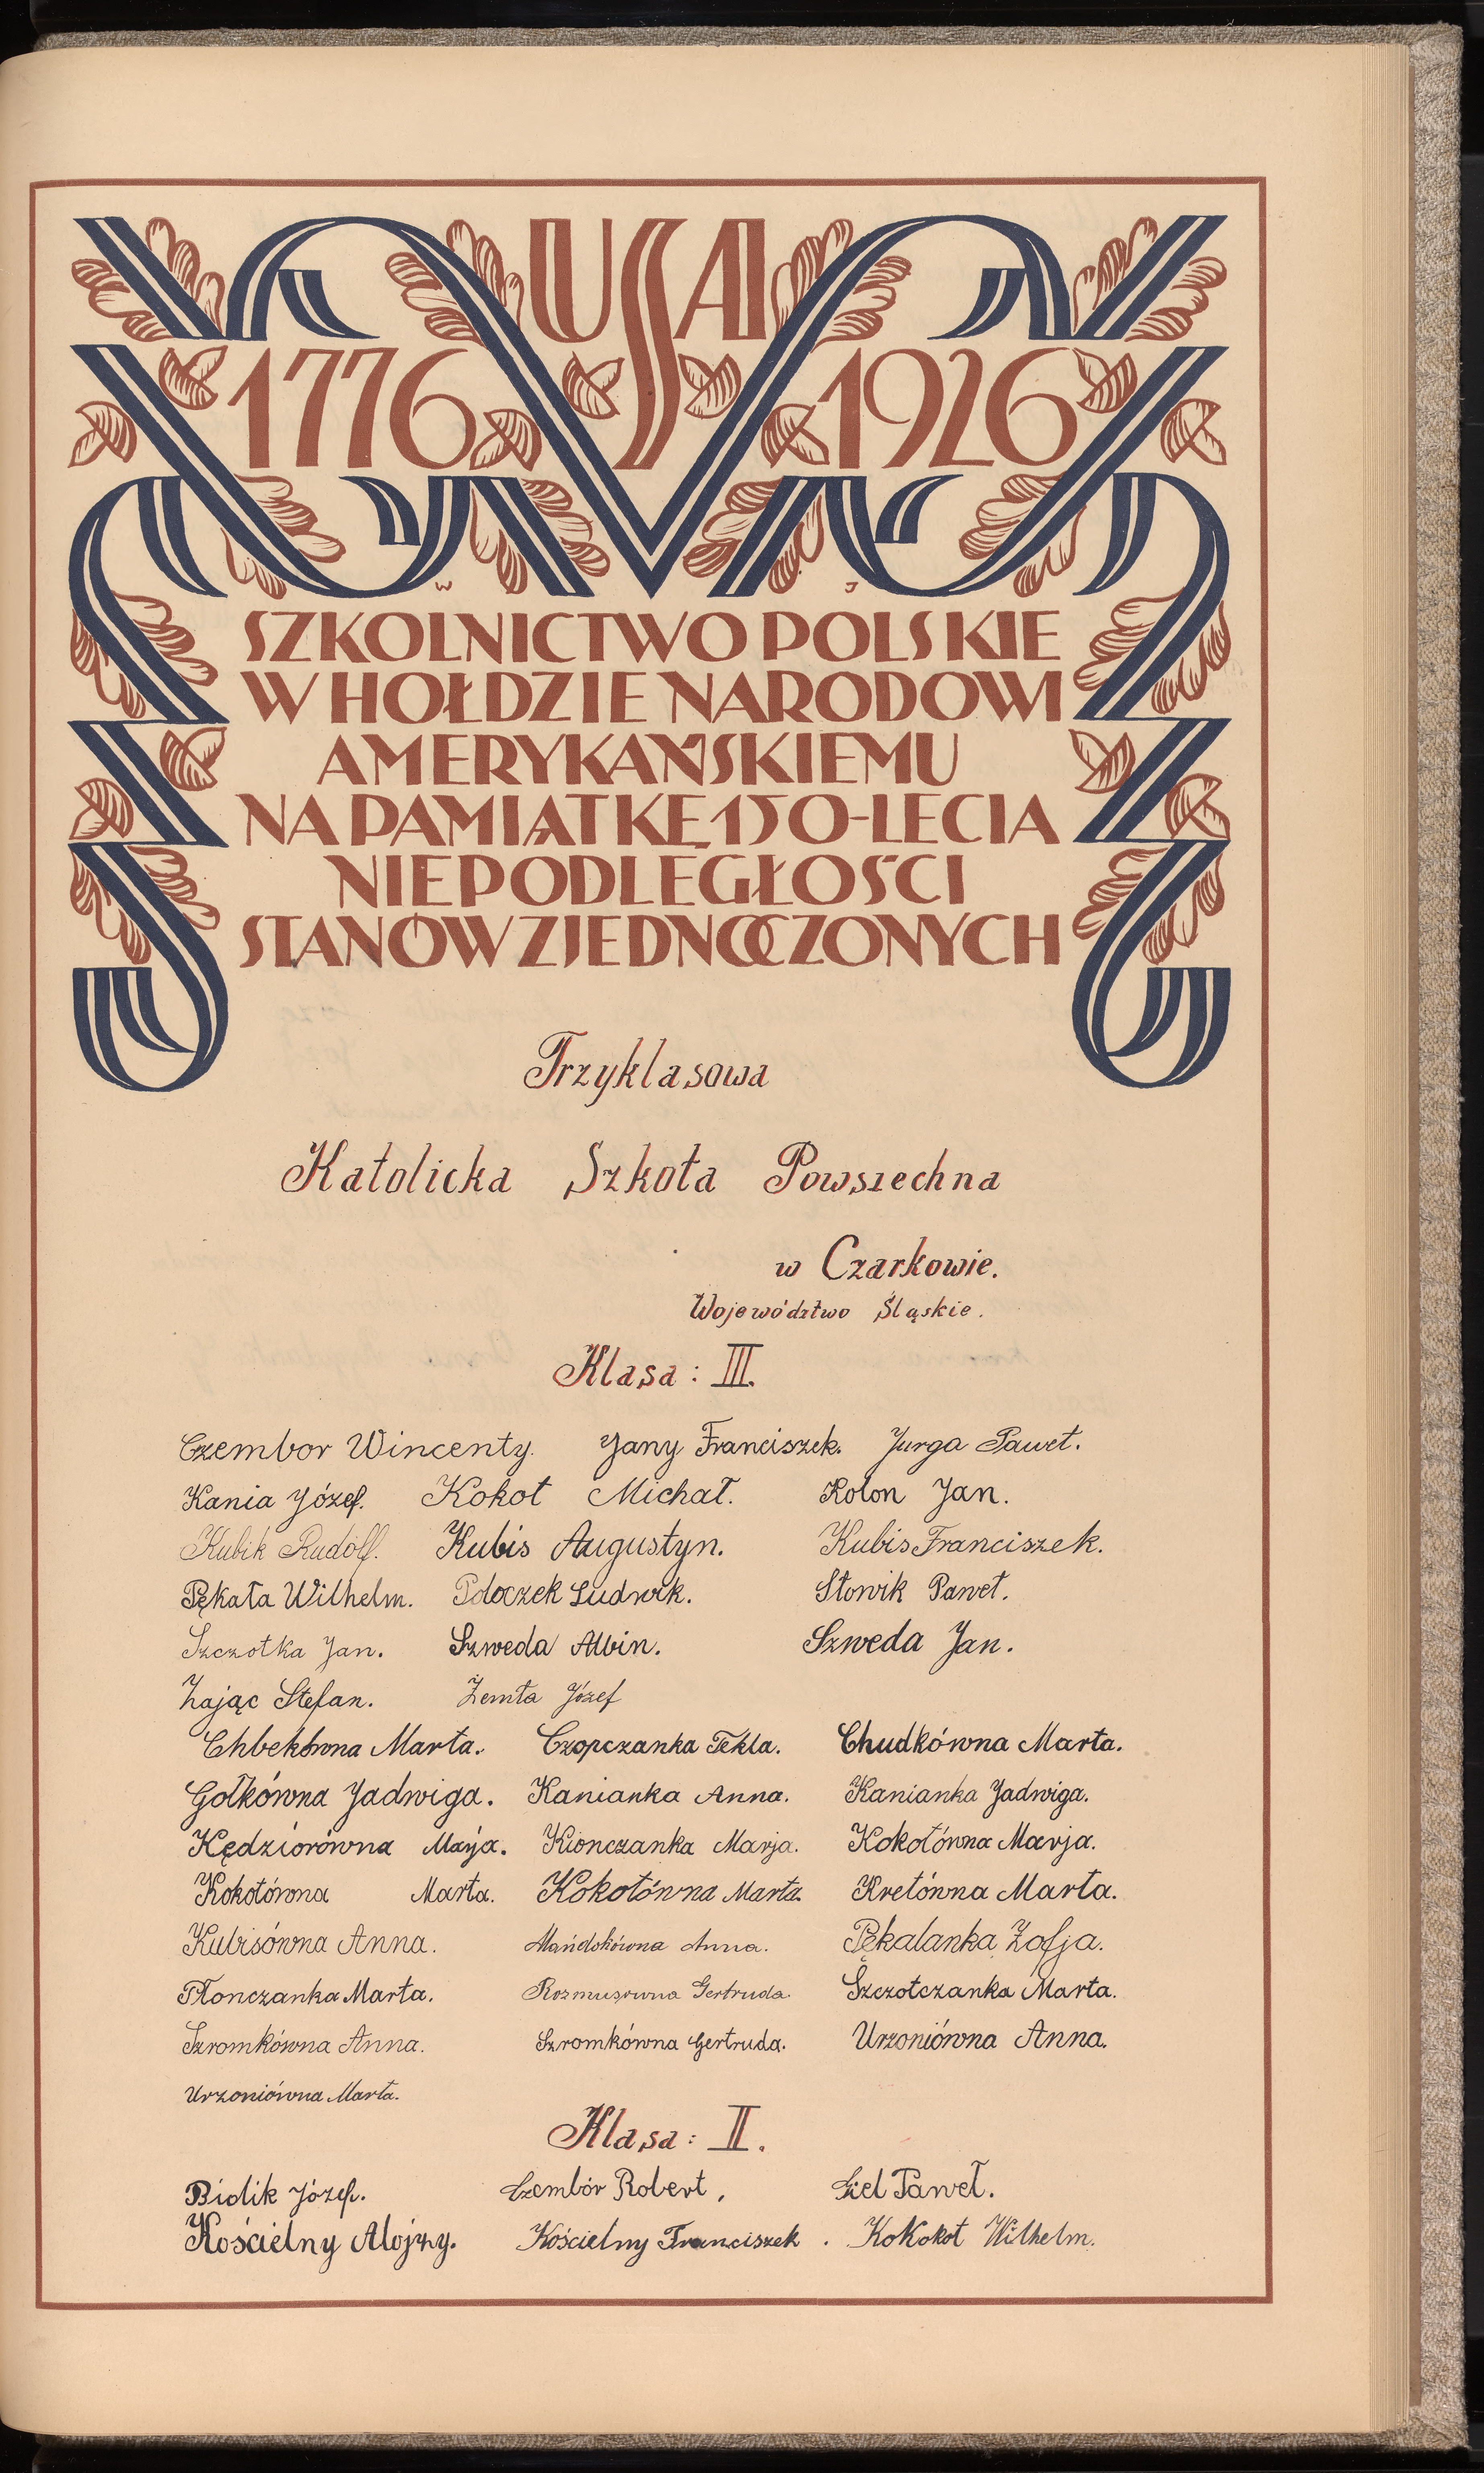 USA
1776 1926
W J
SZKOLNICTWO POLSKIE
W HOŁDZIE NARODOWI
AMERYKAŃSKIEMU
NA PAMIĄTKĘ 150-LECIA
NIEPODLEGŁOŚCI
STANÓW ZJEDNOCZONYCH
Trzyklasowa
Katolicka Szkoła Powszechna
w Czarkowie.
Województwo Śląskie.
Klasa: III.
Czembor Wincenty. Jany Franciszek. Jurga Paweł.
Kania Józef. Kokot Michał. Kolon Jan.
Kubik Rudolf. Kubis Augustyn. Kubis Franciszek.
Pękała Wilhelm. Ludwik. Słowik Paweł.
Szczotka Jan. Szweda Albin. Szweda Jan.
Zając Stefan. Żemła Józef
Marta. Czopczanka Tekla. Chudkówna Marta.
Gołkówna Jadwiga. Kanianka Anna. Kanianka Jadwiga.
Kędziorówna Marja. Kionczanka Marja. Kokotówna Marja.
Kokotówna Marta. Kokotówna Marta. Kretówna Marta.
Kubisówna Anna. Mańdokówna Anna. Pękalanka Zofja.
Płonczanka Marta. Rozmusówna Gertruda. Szczotczanka Marta.
Szromkówna Anna. Szromkówna Gertruda. Urzoniówna Anna.
Urzoniówna Marta.
Klasa: II.
Bidlik Józef. Czembór Robert, Giel Paweł.
Kościelny Alojzy. Kościelny Franciszek. Kokokot Wilhelm.